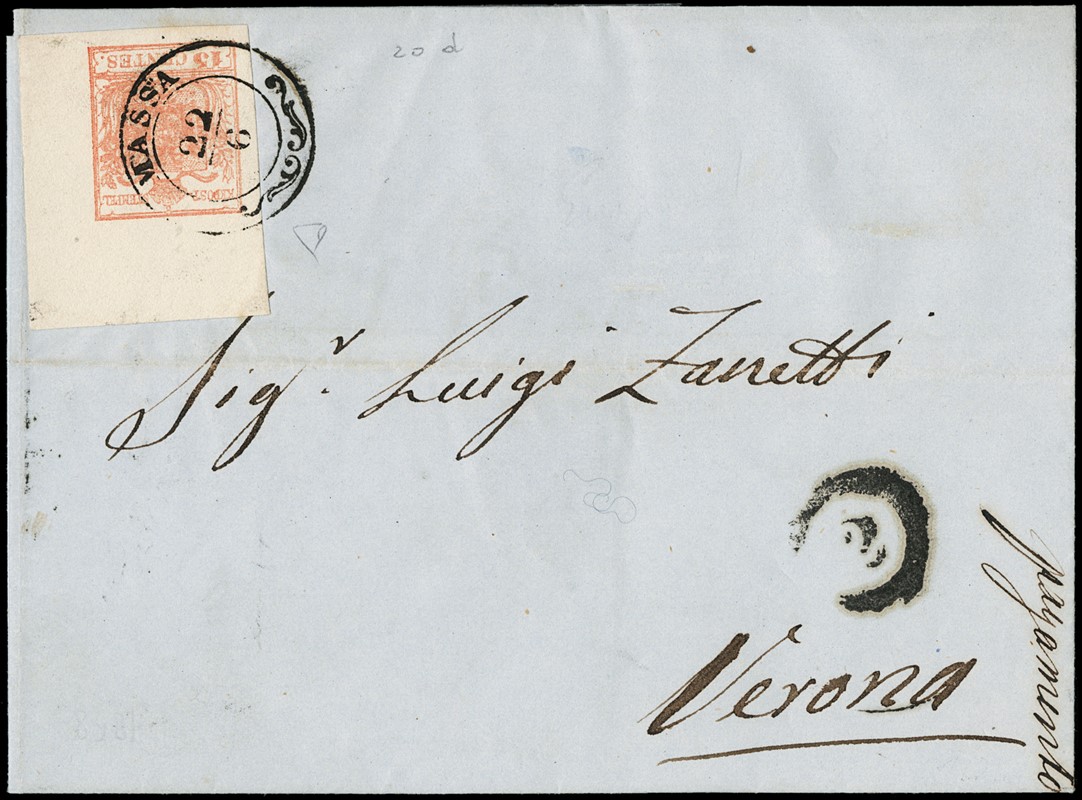 20 d
15 CENTES.
MASSA
22
6
Sig.r Luigi Zanetti
Verona
pagamento